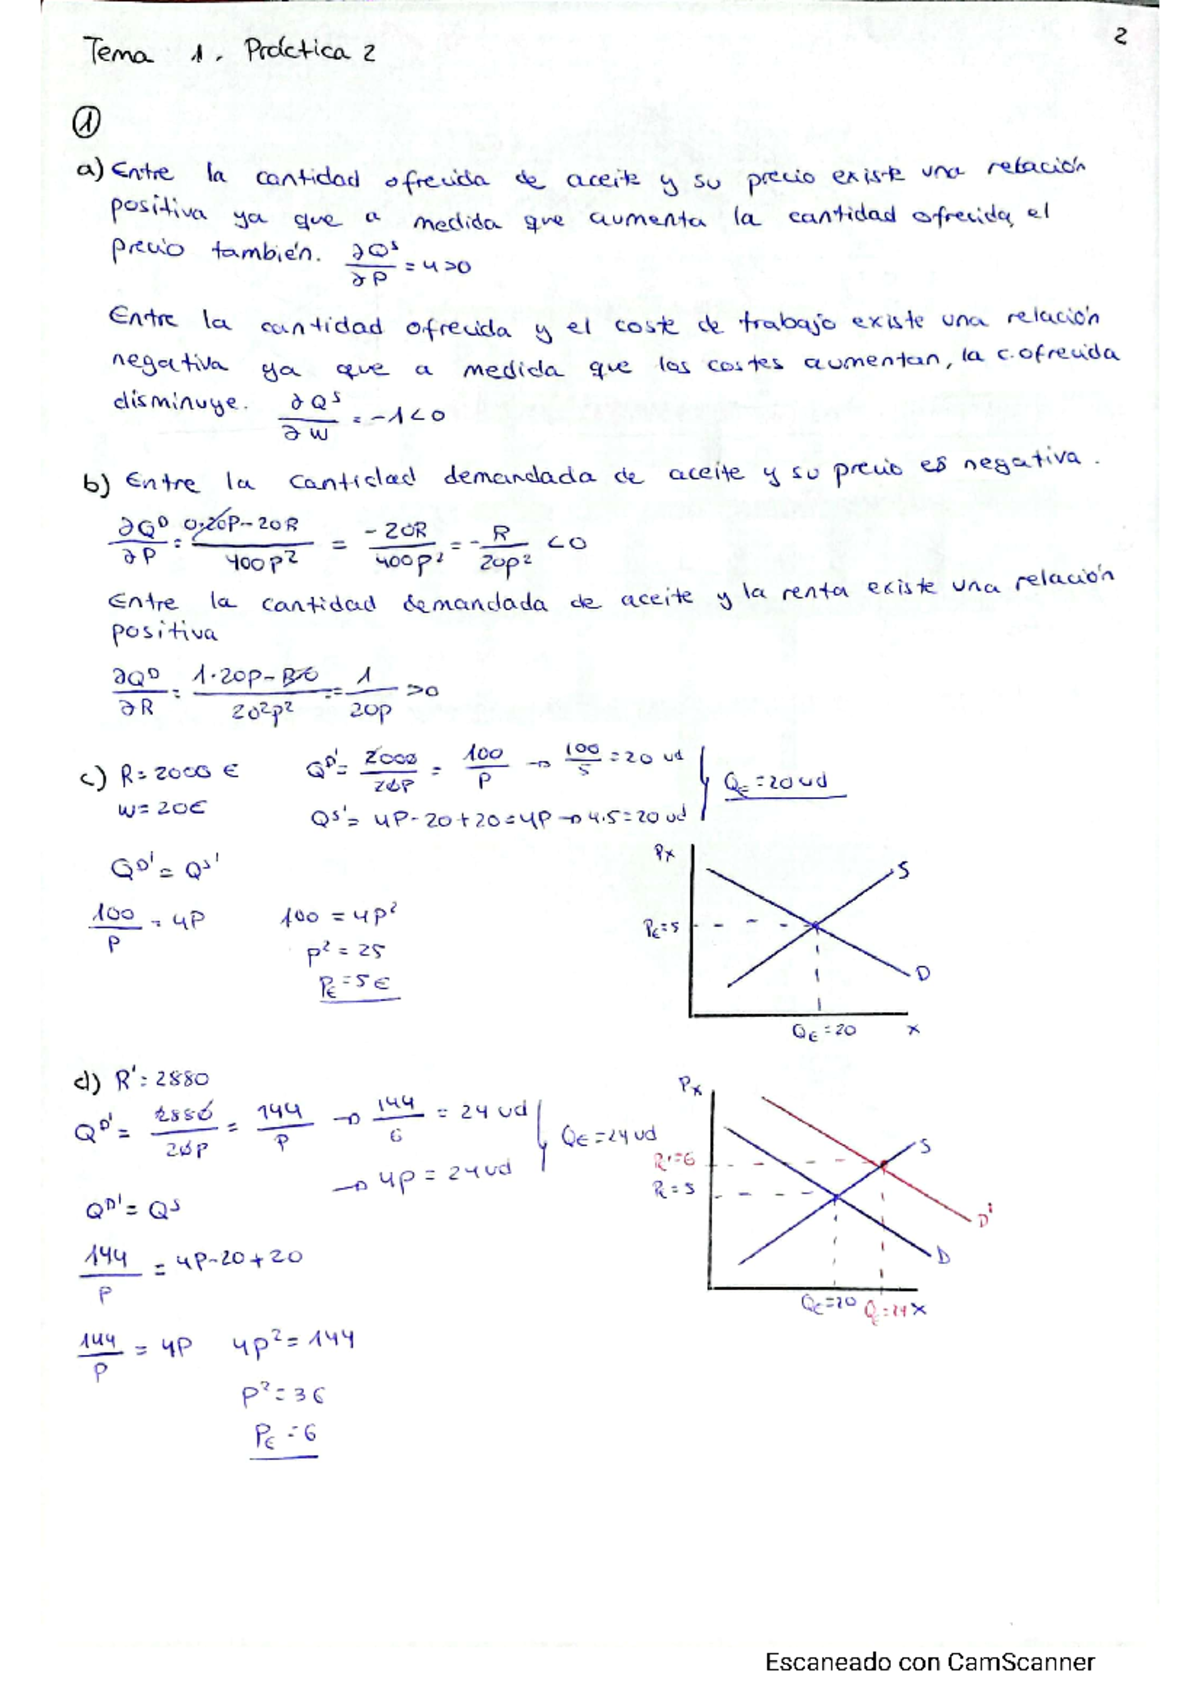 2
Tema 1. Práctica 2
①
a) Entre la cantidad ofrecida de aceite y su precio existe una relación
positiva ya que a medida que aumenta la cantidad ofrecida, el
precio también. ∂Qˢ/∂P = 4>0
Entre la cantidad ofrecida y el coste de trabajo existe una relación
negativa ya que a medida que los costes aumentan, la c. ofrecida
disminuye. ∂Qˢ/∂w = -1<0
b) Entre la cantidad demandada de aceite y su precio es negativa.
∂Qᴰ/∂P = 0·20P-20R/400P² = -20R/400P² = -R/20P² <0
Entre la cantidad demandada de aceite y la renta existe una relación
positiva
∂Qᴰ/∂R = 1·20P-R·0/20²P² = 1/20P >0
c) R=2000 € Qᴰ'= 2000/20P = 100/P → 100/5 = 20 ud
w=20€ Qˢ'= 4P-20+20=4P → 4·5=20 ud
Q_E=20 ud
Qᴰ' = Qˢ'
100/P = 4P 100 = 4P²
P² = 25
P_E = 5€
Px
S
P_E=5
D
Q_E=20 x
d) R'=2880
Qᴰ' = 2880/20P = 144/P → 144/6 = 24 ud
→ 4P = 24 ud
Q_E=24 ud
Qᴰ' = Qˢ
144/P = 4P-20+20
144/P = 4P 4P²=144
P²=36
P_E=6
Px
S
P'=6
P=5
D'
D
Q_E=20 Q_E=24 x
Escaneado con CamScanner